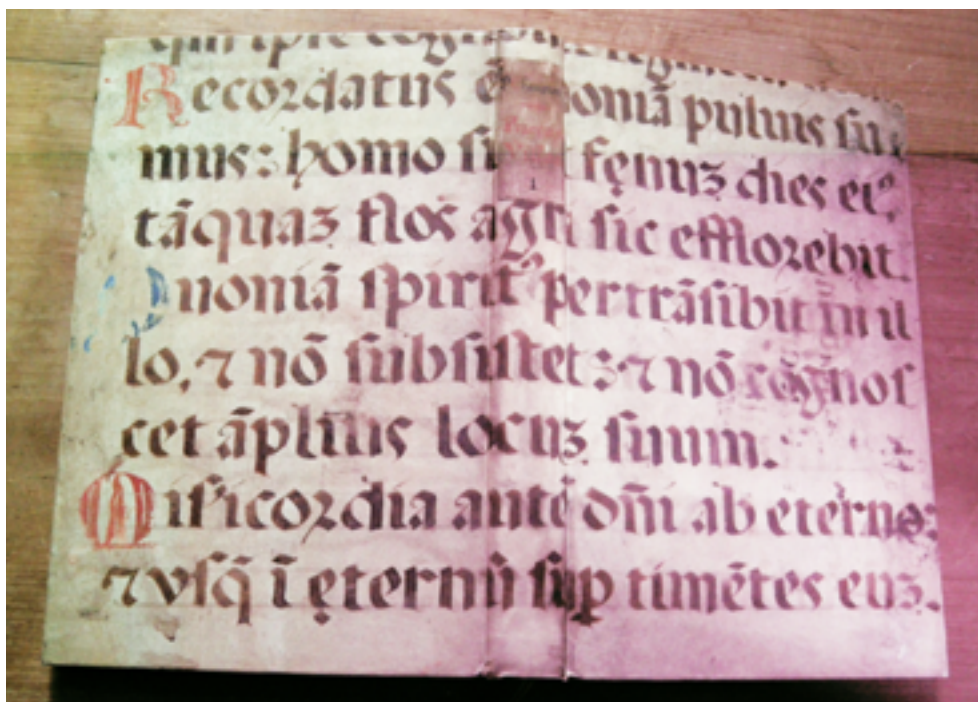 quoniā ipse cognovit figmentum
Recordatus ē qoniā puluis su
mus: homo sicut fęnuz dies ei⁹
tāquaz flos agri sic efflorebit.
Qnoniā spirit⁹ pertrāsibit in il
lo, ⁊ nō subsistet: ⁊ nō cognos
cet āplius locuz suum.
Misicordia autē dn̄i ab eterno:
⁊ vsq̄ ī ęternū sup timētes euz.